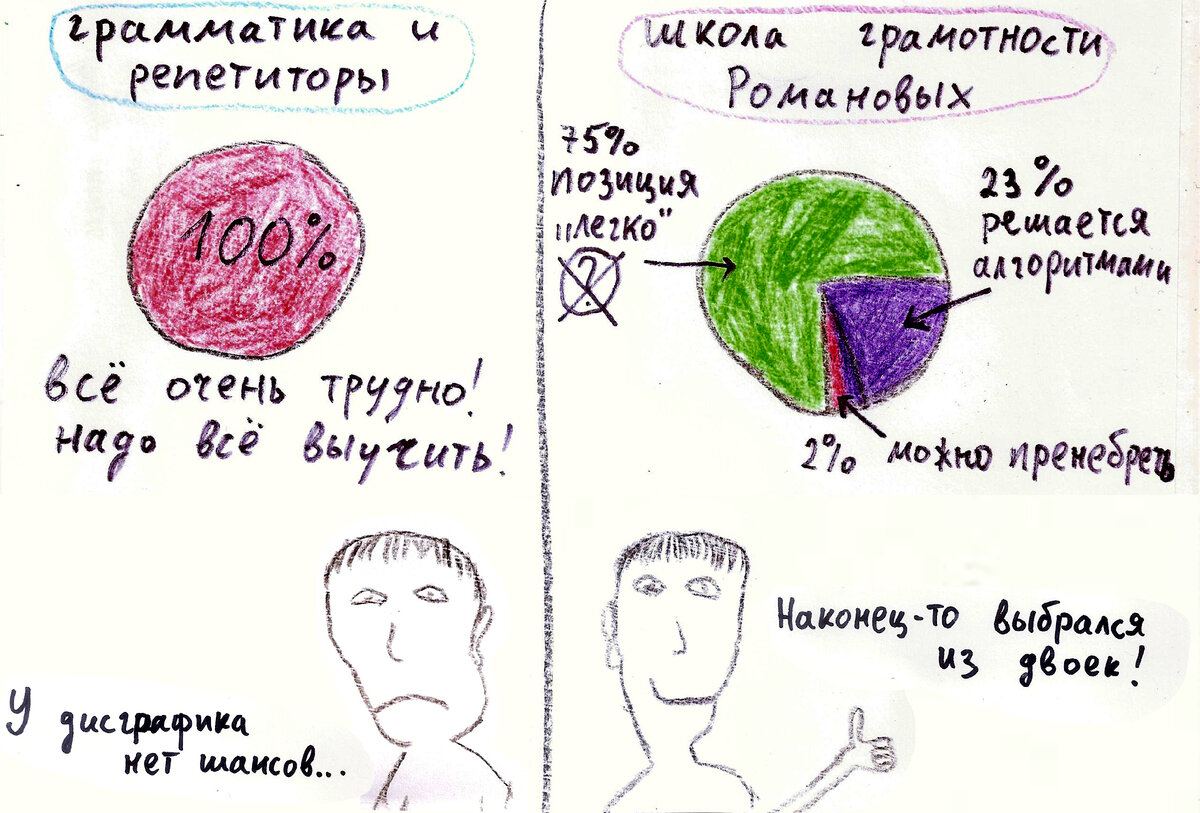 грамматика и
репетиторы
100%
всё очень трудно!
надо всё выучить!
У дисграфика
нет шансов...
школа грамотности
Романовых
75%
позиция
„легко"
?
23%
решается
алгоритмами
2% можно пренебречь
Наконец-то выбрался
из двоек!